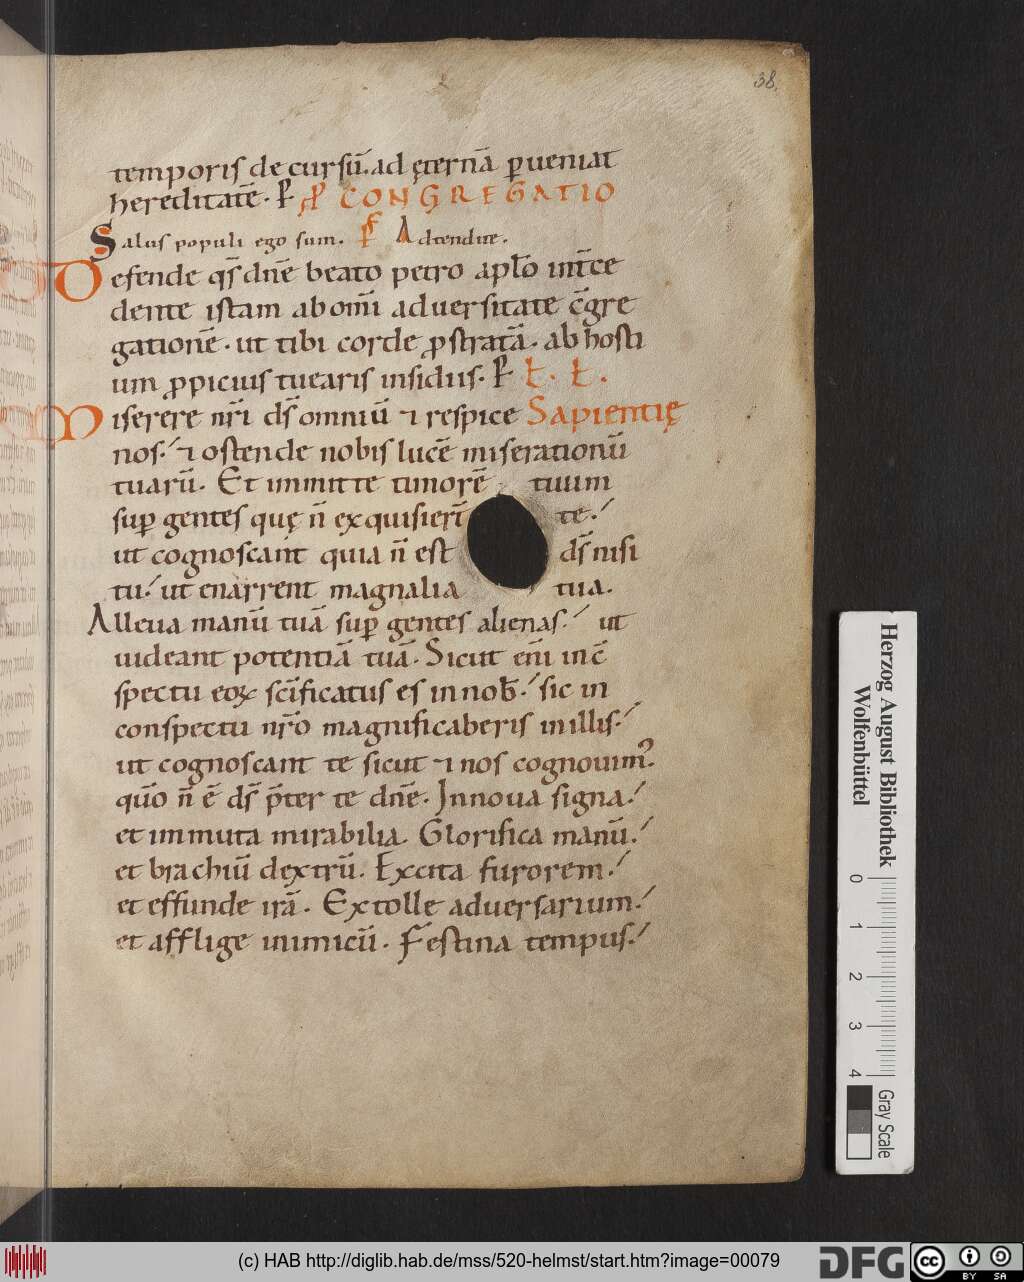 38.
temporis de cursū. ad ęternā ꝑueniat
hereditatē. P
CONGREGATIO
Salus populi ego sum. Ps Adtendite.
Defende qs̄ dnē beato petro apło int̄ce
dente istam ab om̄i aduersitate c̄gre
gationē. ut tibi corde ꝓstratā. ab hosti
um ꝓpicius tuearis insidiis. P Ł. Ł.
Miserere nr̄i ds̄ omniū ⁊ respice Sapientię
nos. ⁊ ostende nobis lucē miserationū
tuarū. Et inmitte timorē tuum
suꝑ gentes quę n̄ exquisier̄t te.
ut cognoscant quia n̄ est ds̄ nisi
tu. ut enarrent magnalia tua.
Alleua manū tuā suꝑ gentes alienas. ut
uideant potentiā tuā. Sicut eni̅ in c̄
spectu eoꝝ sc̄ificatus es in nob̄. sic in
conspectu nr̄o magnificaberis in illis.
ut cognoscant te sicut ⁊ nos cognouimꝰ.
qūo n̄ ē ds̄ p̄ter te dnē. Innoua signa.
et inmuta mirabilia. Glorifica manū.
et brachiū dextrū. Excita furorem.
et effunde irā. Extolle aduersarium.
et afflige inimicū. Festina tempus.
Herzog August Bibliothek
Wolfenbüttel
0 1 2 3 4
Gray Scale
(c) HAB http://diglib.hab.de/mss/520-helmst/start.htm?image=00079
DFG
cc BY SA